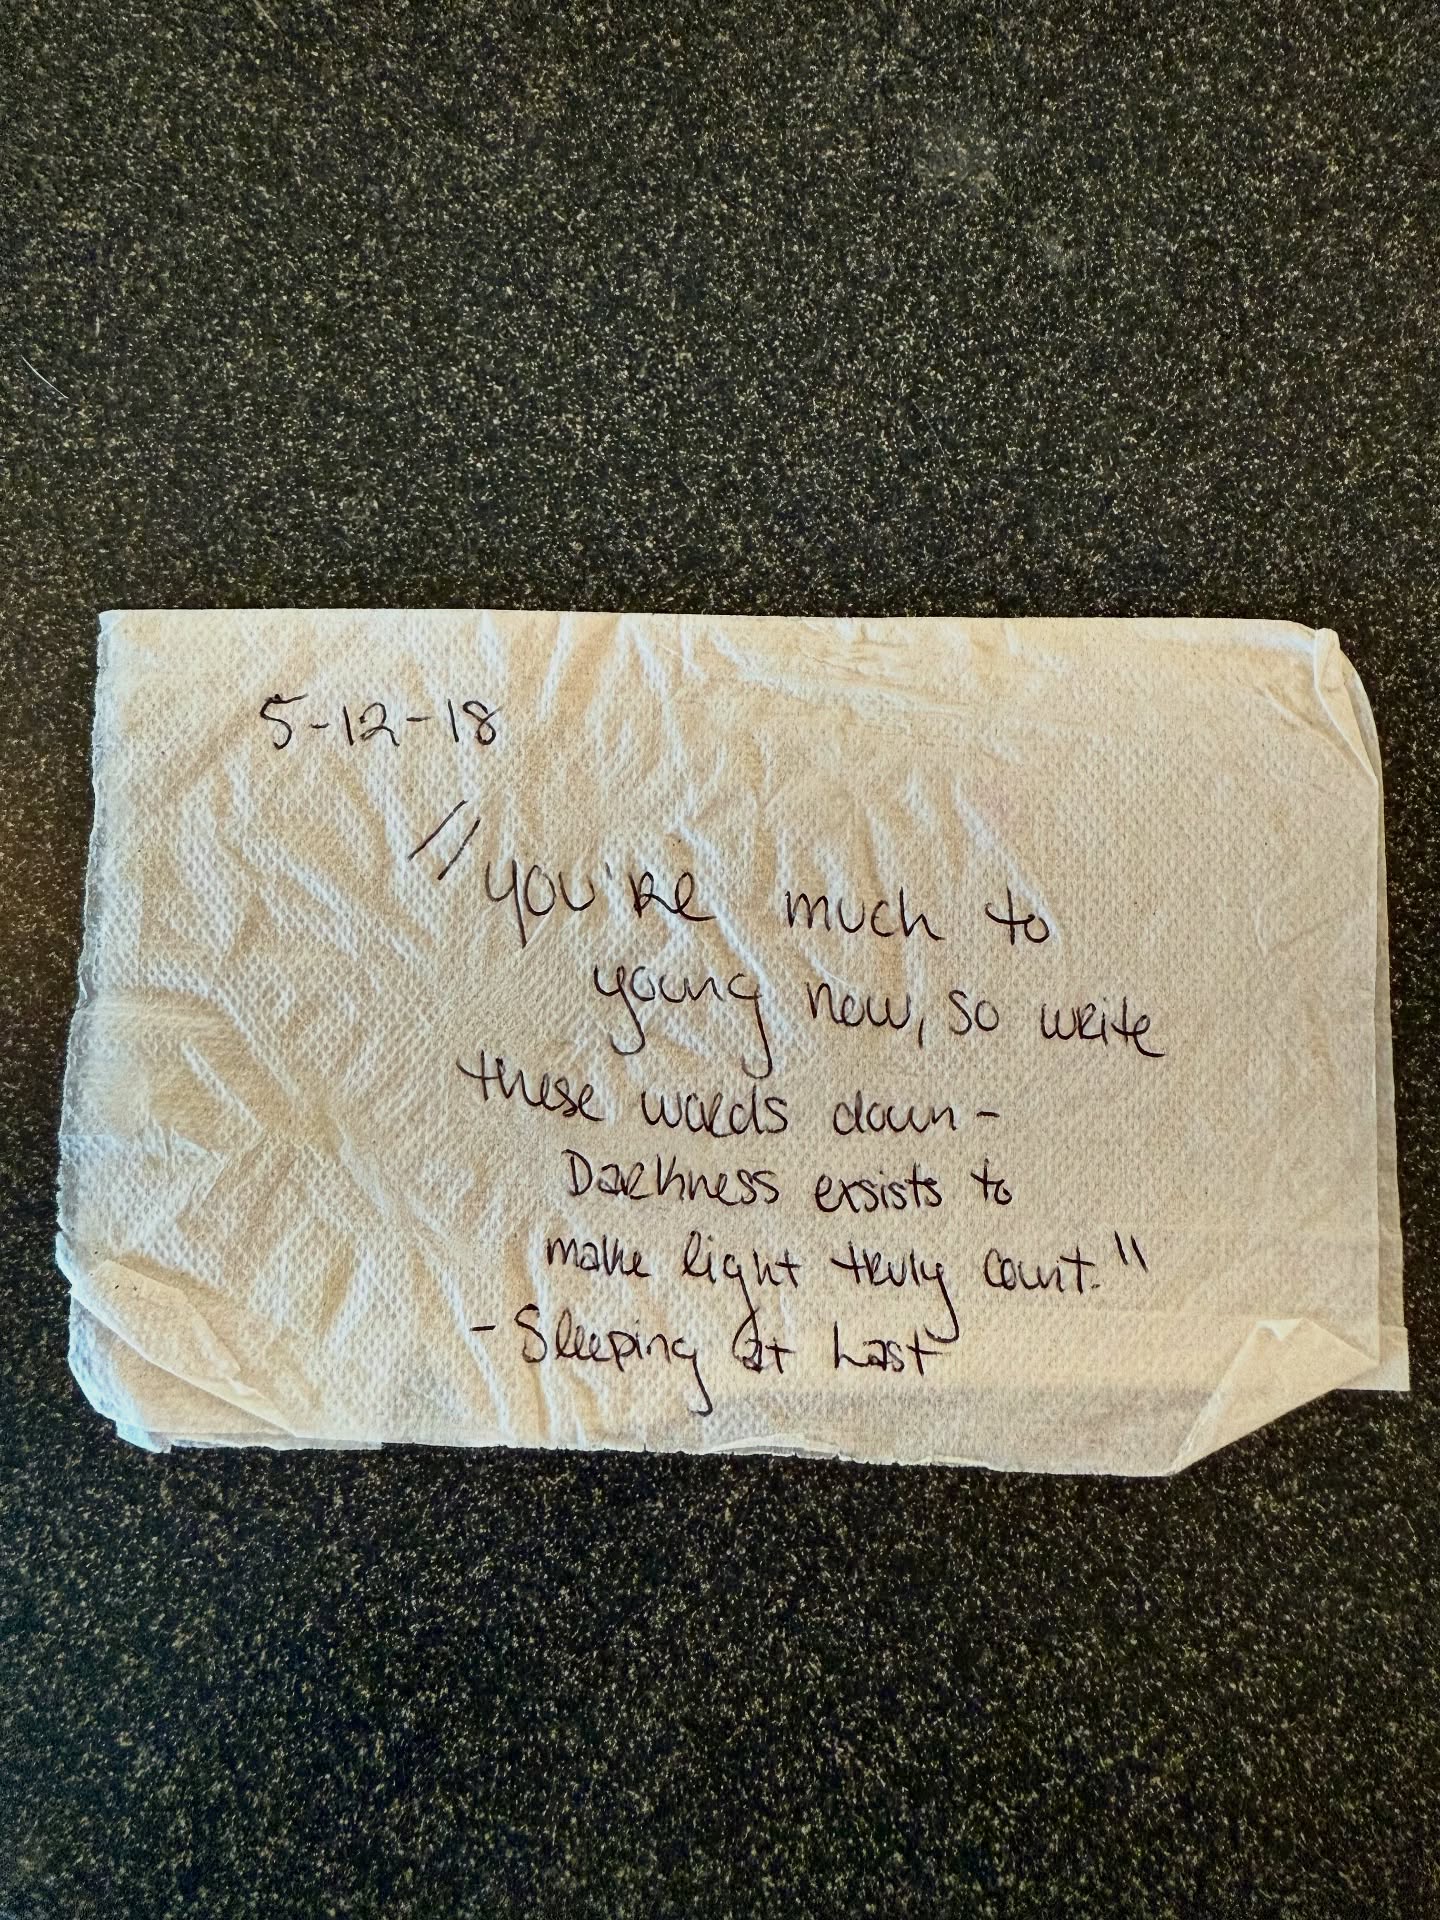 5-12-18
"you're much to
young now, so write
these words down-
Darkness exsists to
make light truly count."
- Sleeping at Last